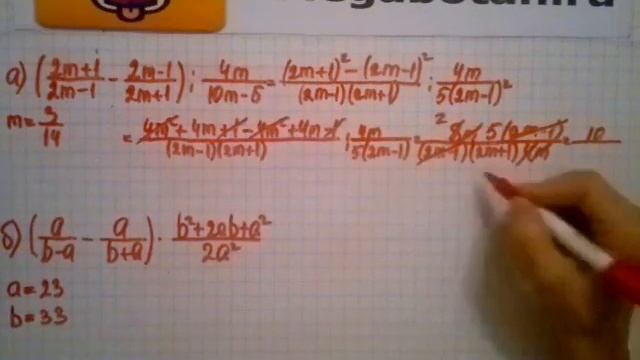 а) (2m+1/2m-1 - 2m-1/2m+1) : 4m/10m-5 = (2m+1)² - (2m-1)²/(2m-1)(2m+1) : 4m/5(2m-1)²
m = 3/14
= 4m²+4m+1-4m²+4m-1/(2m-1)(2m+1) : 4m/5(2m-1) = 2 8m · 5(2m-1)/(2m-1)(2m+1)4m = 10
б) (a/b-a - a/b+a) · b²+2ab+a²/2a²
a = 23
b = 33